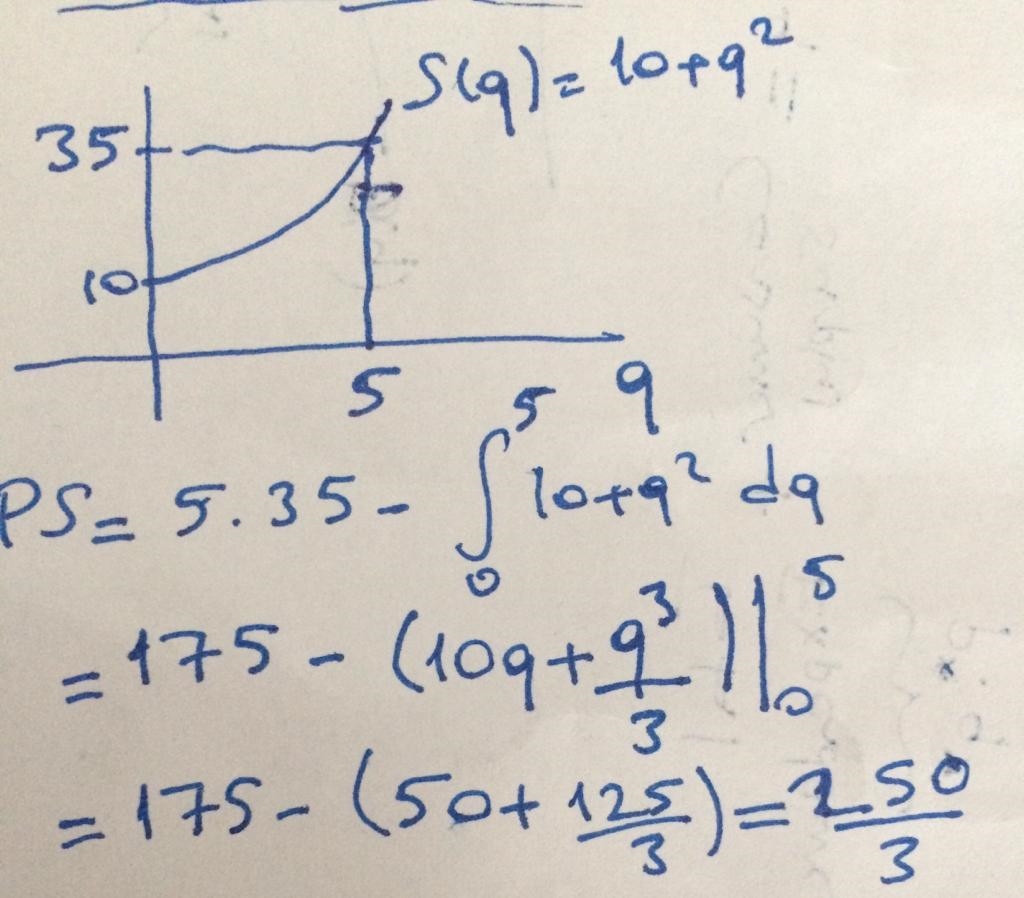 S(q) = 10+q²
35
10
5
q
PS = 5.35 - ∫₀⁵ 10+q² dq
= 175 - (10q + q³/3)|₀⁵
= 175 - (50 + 125/3) = 250/3